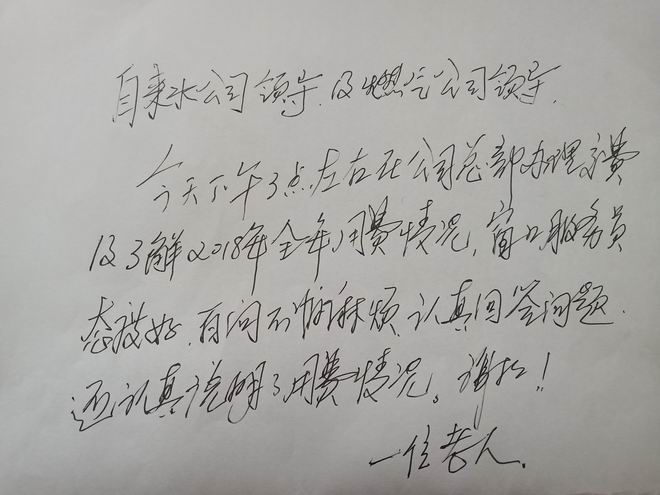 自来水公司领导、及燃气公司领导.
今天下午3点左右在公司总部办理交费
及了解2018年全年用费情况，窗口服务员
态度好、有问不怕麻烦、认真回答问题.
还认真说明了用费情况。谢谢！！
一位老人.